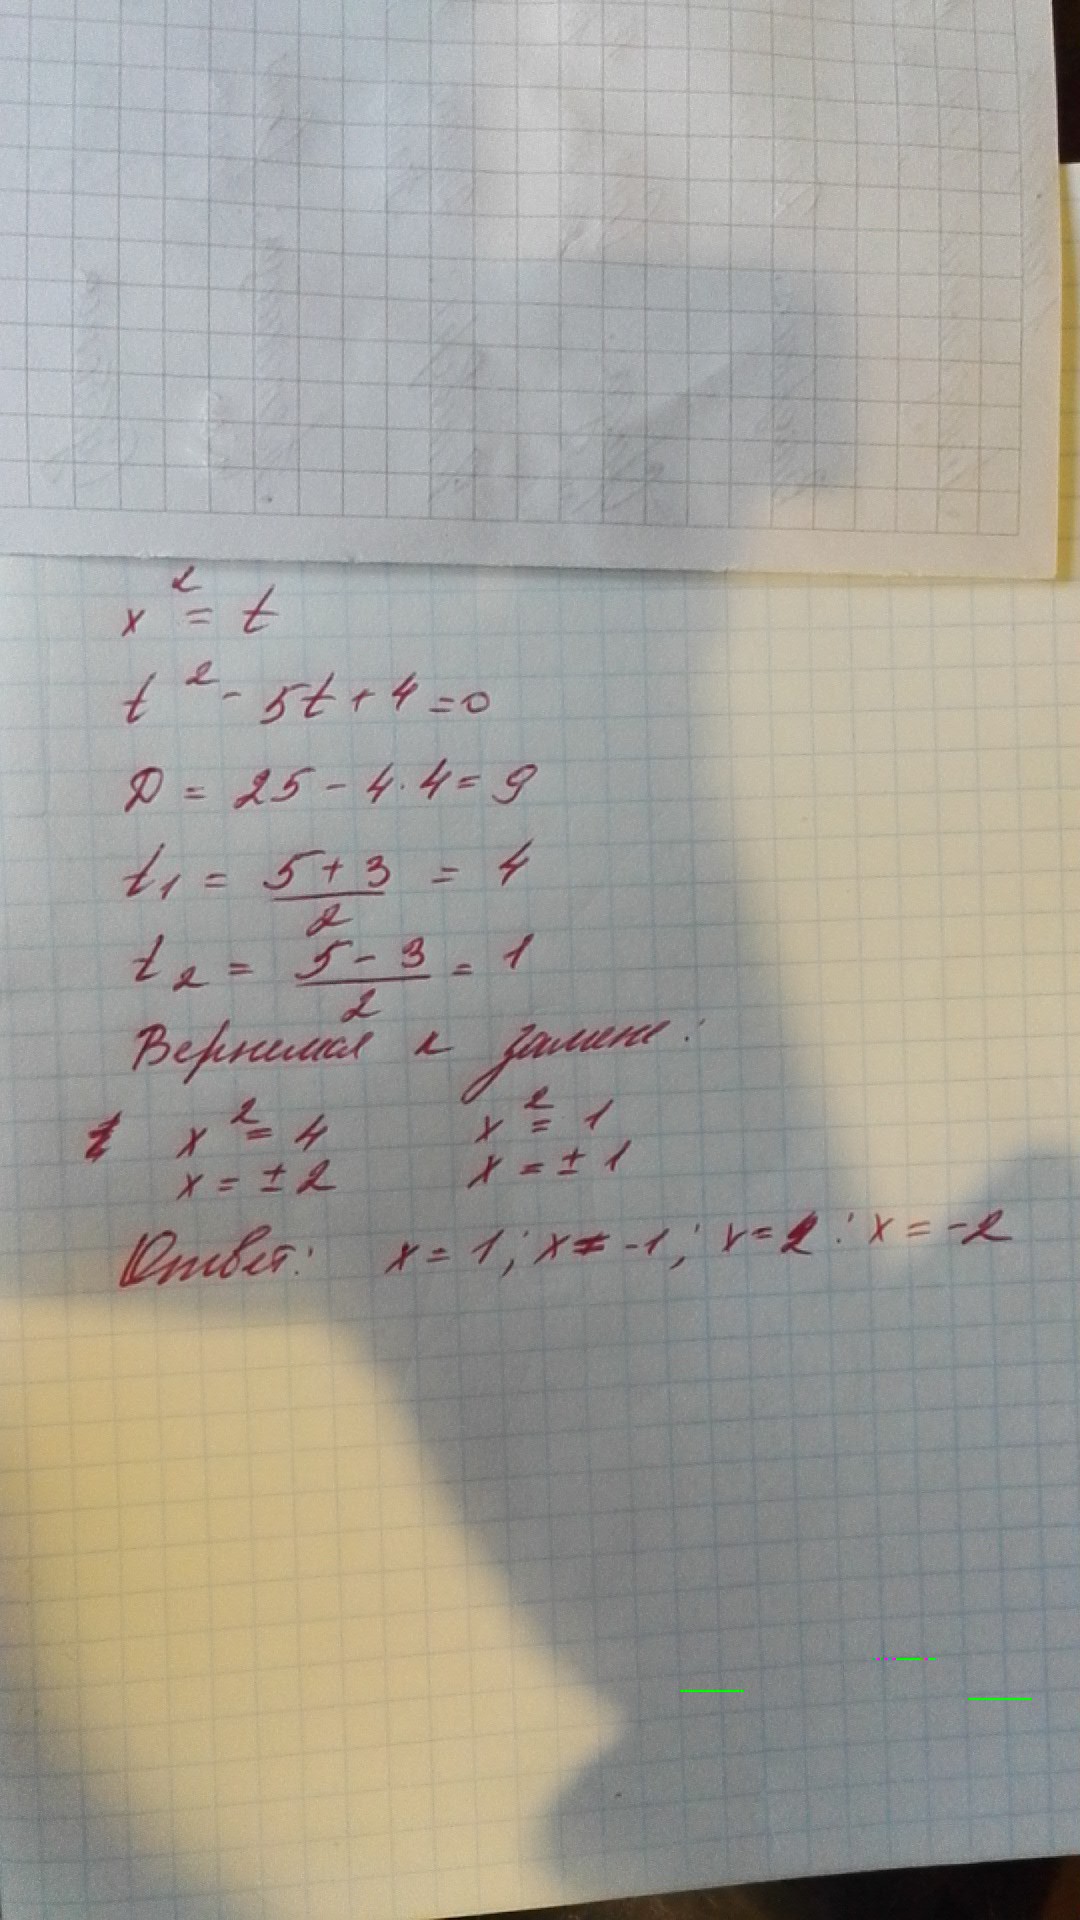 x² = t
t² - 5t + 4 = 0
D = 25 - 4·4 = 9
t₁ = (5 + 3)/2 = 4
t₂ = (5 - 3)/2 = 1
Вернемся к замене:
x² = 4 x² = 1
x = ±2 x = ±1
Ответ: x = 1; x = -1; x = 2; x = -2